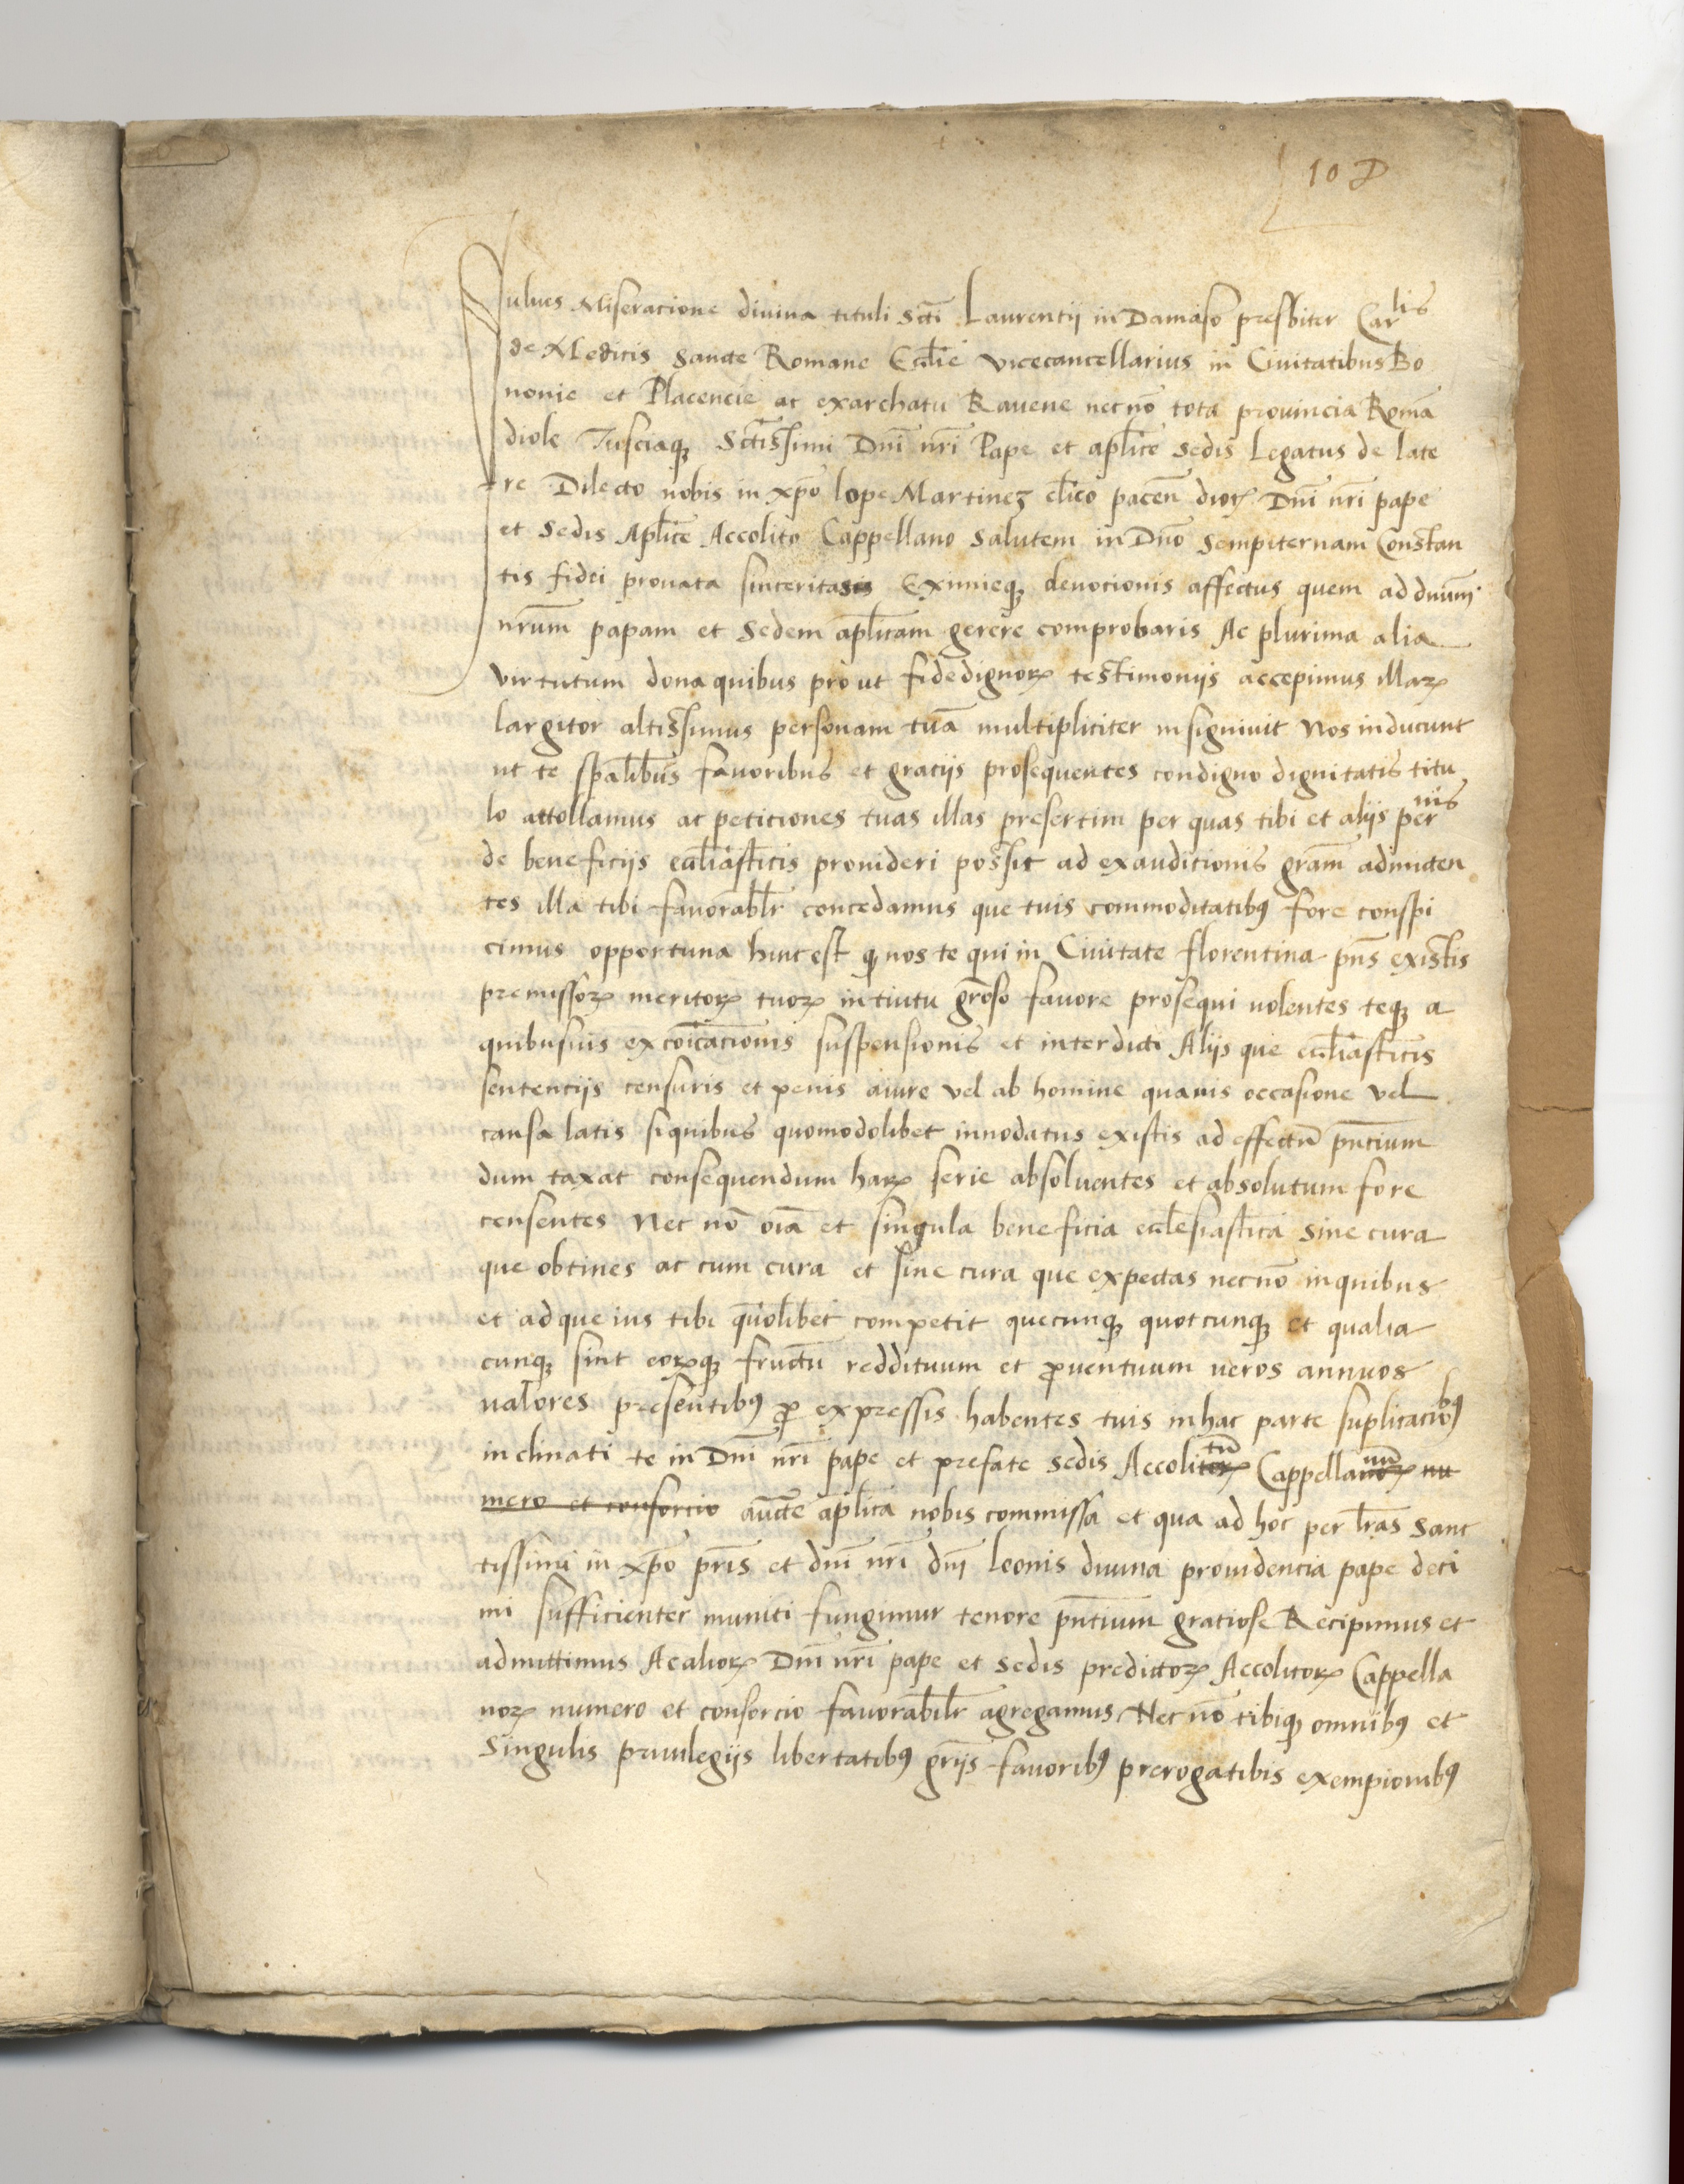 10 D
Julius Miseracione divina tituli Scti Laurentij in Damaso presbiter Carlis
de Medicis Sancte Romane Ecclie vicecancellarius in Civitatibus Bo
nonie et Placencie ac exarchatu Ravene necnō tota provincia Romā
diole Tusciaqȝ Sctissimi Dnī nrī Pape et aplice Sedis Legatus de late
re Dilecto nobis in xpō lope Martinez clico pacen̄ dioꝝ Dnī nrī pape
et Sedis Aplice Accolito Cappellano Salutem in Dnō Sempiternam Constan
tis fidei provata sinceritas Eximieqȝ devocionis affectus quem ad dnūm
nrūm papam et Sedem aplicam gerere comprobaris Ac plurima alia
virtutum dona quibus pro ut fidedignoꝝ testimoniis accepimus illaꝝ
largitor altissimus personam tuā multipliciter insignivit Nos inducunt
ut te spalibus favoribus et gracijs prosequentes condigno dignitatis titu
lo attollamus ac peticiones tuas illas presertim per quas tibi et alijs pernis
de beneficijs eccliasticis provideri possit ad exauditionis gram̄ admitten
tes illa tibi favorablr concedamus que tuis commoditatibꝰ fore conspi
cimus opportuna hinc est qȝ nos te qui in Civitate florentina pn̄s existis
premissoꝝ meritoꝝ tuoꝝ intiutu grōso favore prosequi volentes teqȝ a
quibusvis excoīcacionis suspensionis et interdicti Alijs que eccliasticis
sentencijs censuris et penis aiure vel ab homine quavis occasione vel
causa latis siquibus quomodolibet innodatus existis ad effectū pn̄tium
dum taxat consequendum haꝝ serie absolventes et absolutum fore
censentes Nec nō oīa et singula beneficia ecclesiastica sine cura
que obtines ac cum cura et sine cura que expectas necnō inquibus
et ad que ius tibi qūolibet competit quecunqȝ quotcunqȝ et qualia
cunqȝ sint eoꝝqȝ fructū reddituum et ꝓventuum veros annuos
valores presentibꝰ ꝓ expressis habentes tuis inhac parte suplicaciōbꝰ
inclinati te in Dnī nrī pape et prefate Sedis Accolitoꝝ tū Cappellanoꝝ nū nu
mero et consorcio auctē aplica nobis commissa et qua ad hoc per lras Sanc
tissimi in xpō pris et dnī nrī dnī leonis divina providencia pape deci
mi sufficienter muniti fungimur tenore pn̄tium gratiose Recipimus et
admittimus Acalioꝝ Dnī nrī pape et Sedis predictoꝝ Accolitoꝝ Cappella
noꝝ numero et consorcio favorabilr agregamus Nec nō tibiqȝ omnibꝰ et
Singulis privilegijs libertatibꝰ grijs favoribꝰ prerogatibis exempionibꝰ